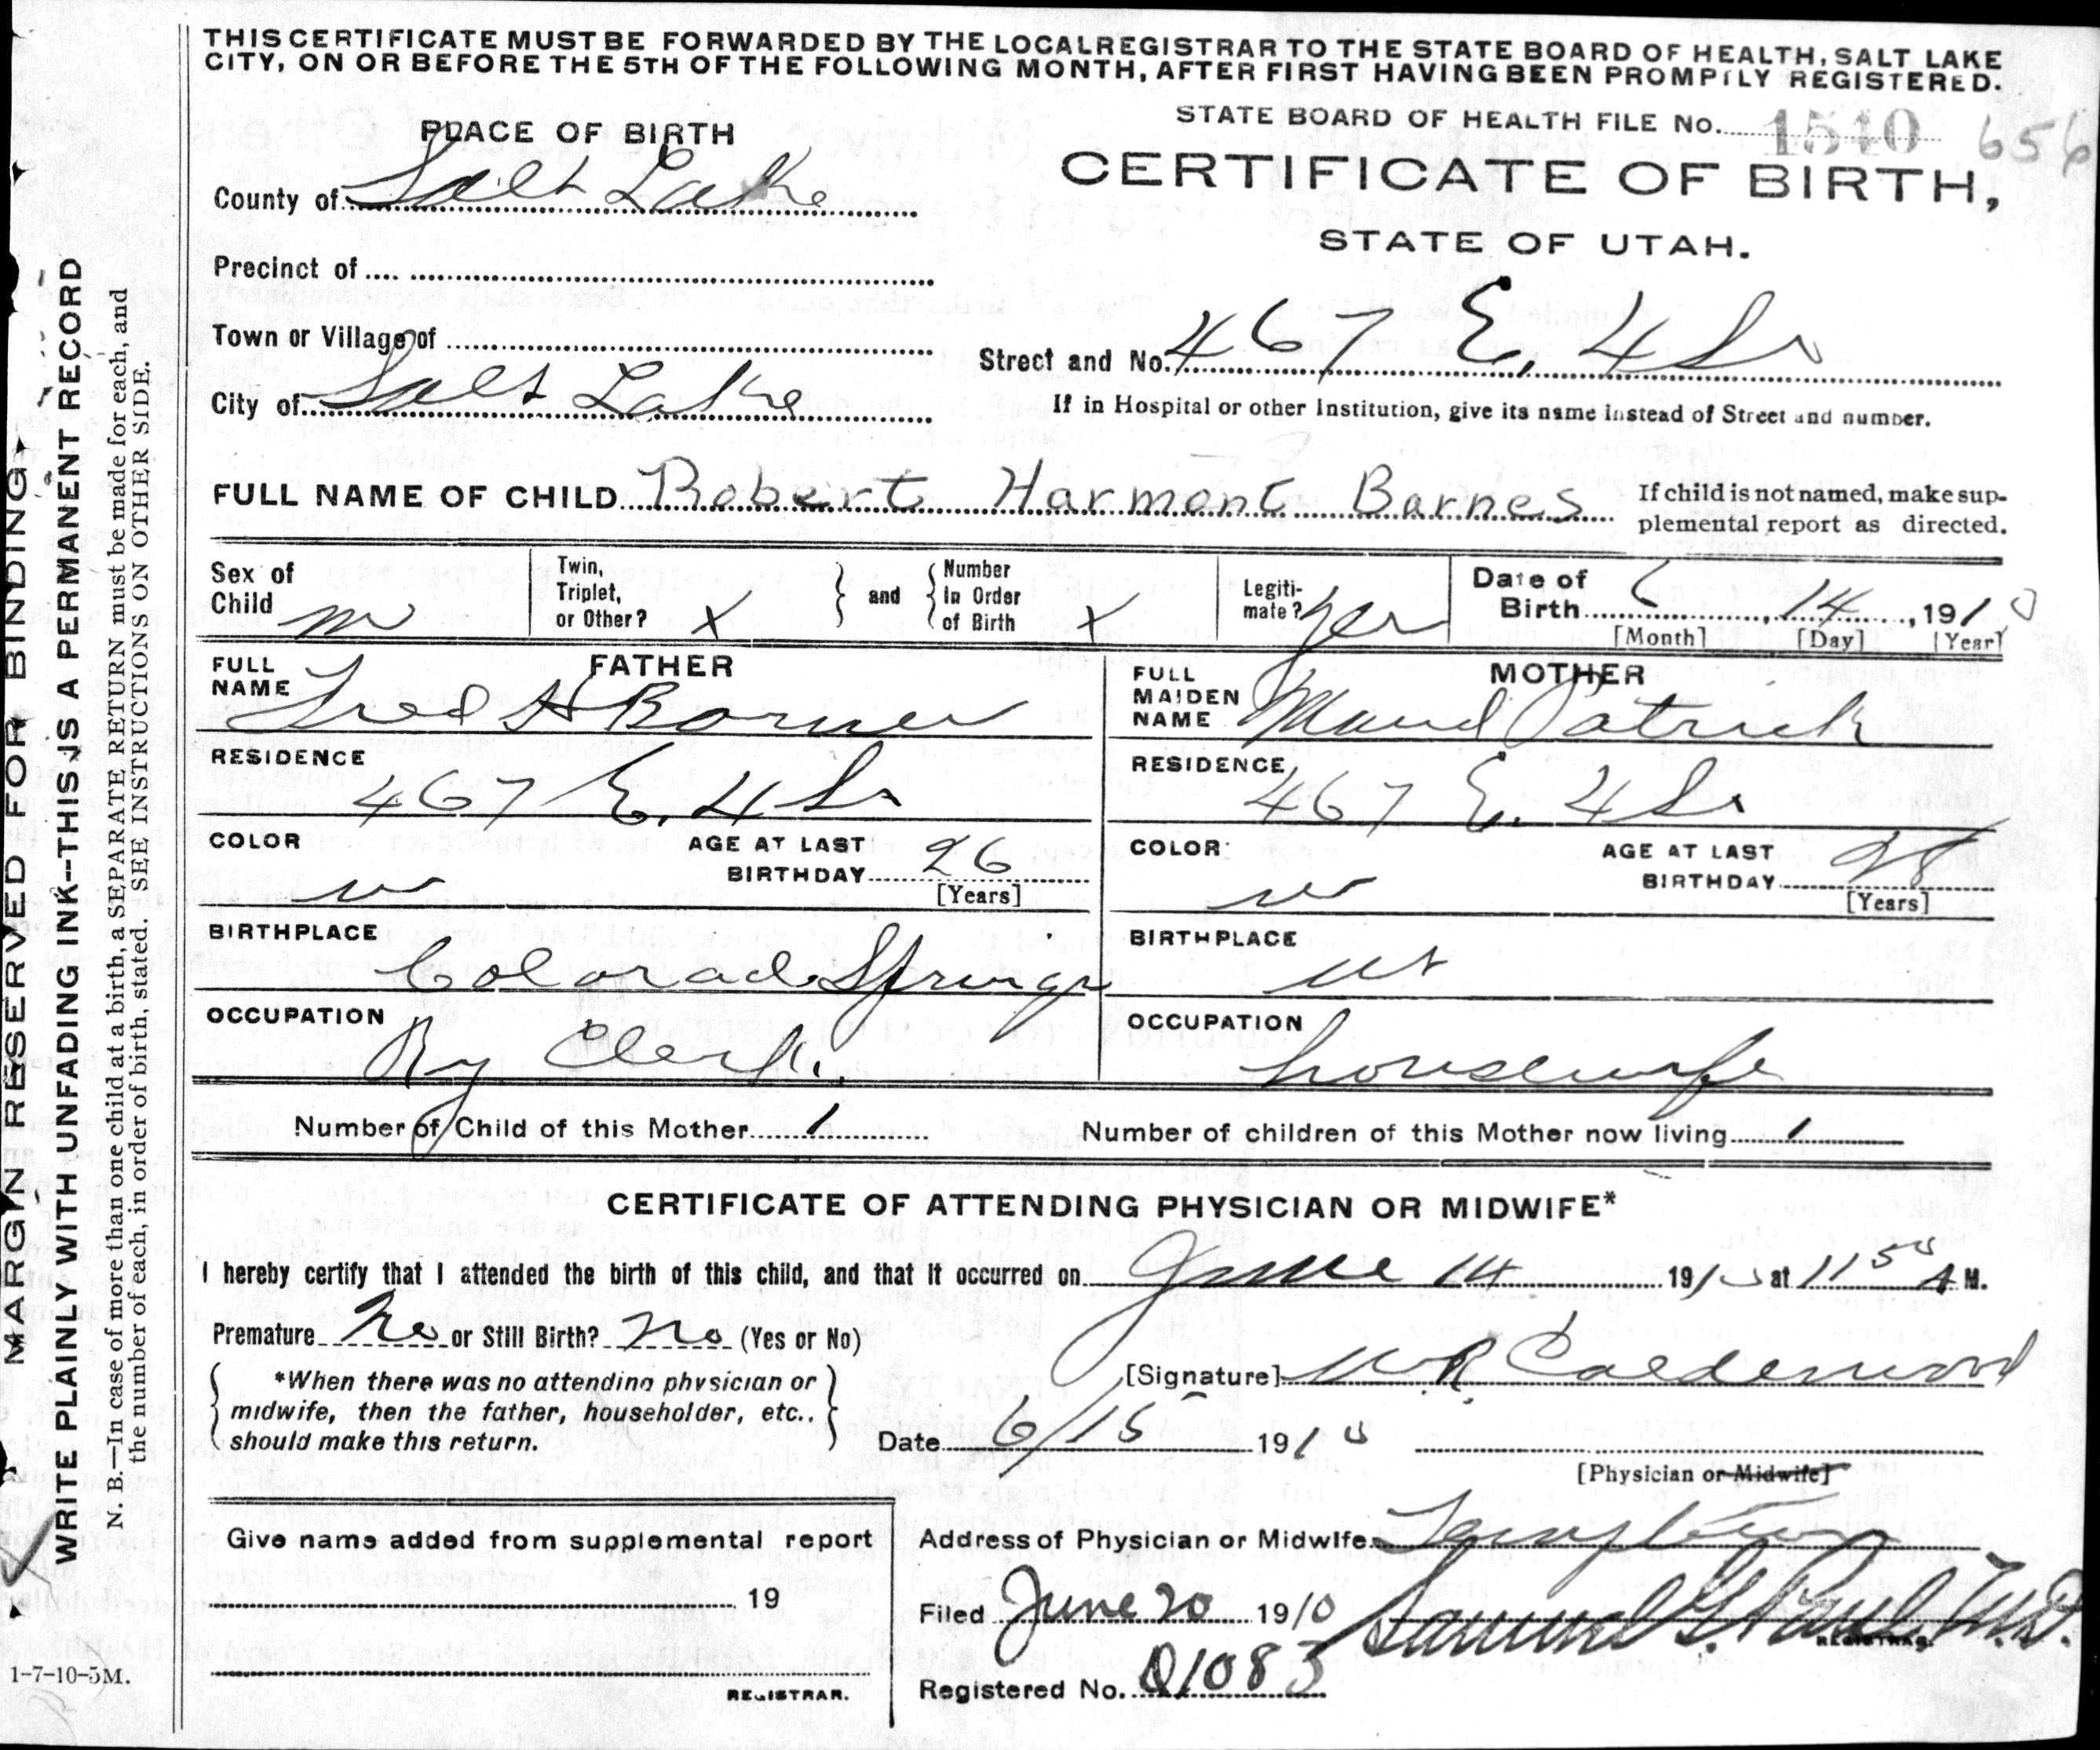 THIS CERTIFICATE MUST BE FORWARDED BY THE LOCAL REGISTRAR TO THE STATE BOARD OF HEALTH, SALT LAKE
CITY, ON OR BEFORE THE 5TH OF THE FOLLOWING MONTH, AFTER FIRST HAVING BEEN PROMPTLY REGISTERED.
STATE BOARD OF HEALTH FILE No. 1510 656
PLACE OF BIRTH
CERTIFICATE OF BIRTH,
STATE OF UTAH.
County of Salt Lake
Precinct of
Town or Village of
Street and No. 467 E. 4 So
City of Salt Lake
If in Hospital or other Institution, give its name instead of Street and number.
FULL NAME OF CHILD Robert Harmont Barnes
If child is not named, make sup-
plemental report as directed.
Sex of
Child m
Twin,
Triplet,
or Other? X
and
Number
In Order
of Birth X
Legiti-
mate? yes
Date of
Birth 6, 14, 1910
[Month] [Day] [Year]
FATHER
FULL
NAME Fred H Barnes
RESIDENCE
467 E. 4 So
COLOR
w
AGE AT LAST
BIRTHDAY 26
[Years]
BIRTHPLACE
Colorado Springs
OCCUPATION
Ry Clerk.
MOTHER
FULL
MAIDEN
NAME Maud Patrick
RESIDENCE
467 E. 4 So
COLOR
w
AGE AT LAST
BIRTHDAY 28
[Years]
BIRTHPLACE
Ut
OCCUPATION
housewife
Number of Child of this Mother 1
Number of children of this Mother now living 1
CERTIFICATE OF ATTENDING PHYSICIAN OR MIDWIFE*
I hereby certify that I attended the birth of this child, and that it occurred on June 14 1910 at 11 50 A M.
Premature No or Still Birth? No (Yes or No)
*When there was no attending physician or
midwife, then the father, householder, etc.,
should make this return.
[Signature] W R Calderwood
Date 6/15 1910
[Physician or Midwife]
Give name added from supplemental report
19
REGISTRAR.
Address of Physician or Midwife
Filed June 20 1910 Samuel G. Paul M.D.
REGISTRAR.
Registered No. 01083
MARGIN RESERVED FOR BINDING
WRITE PLAINLY WITH UNFADING INK--THIS IS A PERMANENT RECORD
N. B.—In case of more than one child at a birth, a SEPARATE RETURN must be made for each, and
the number of each, in order of birth, stated. SEE INSTRUCTIONS ON OTHER SIDE.
1-7-10-5M.